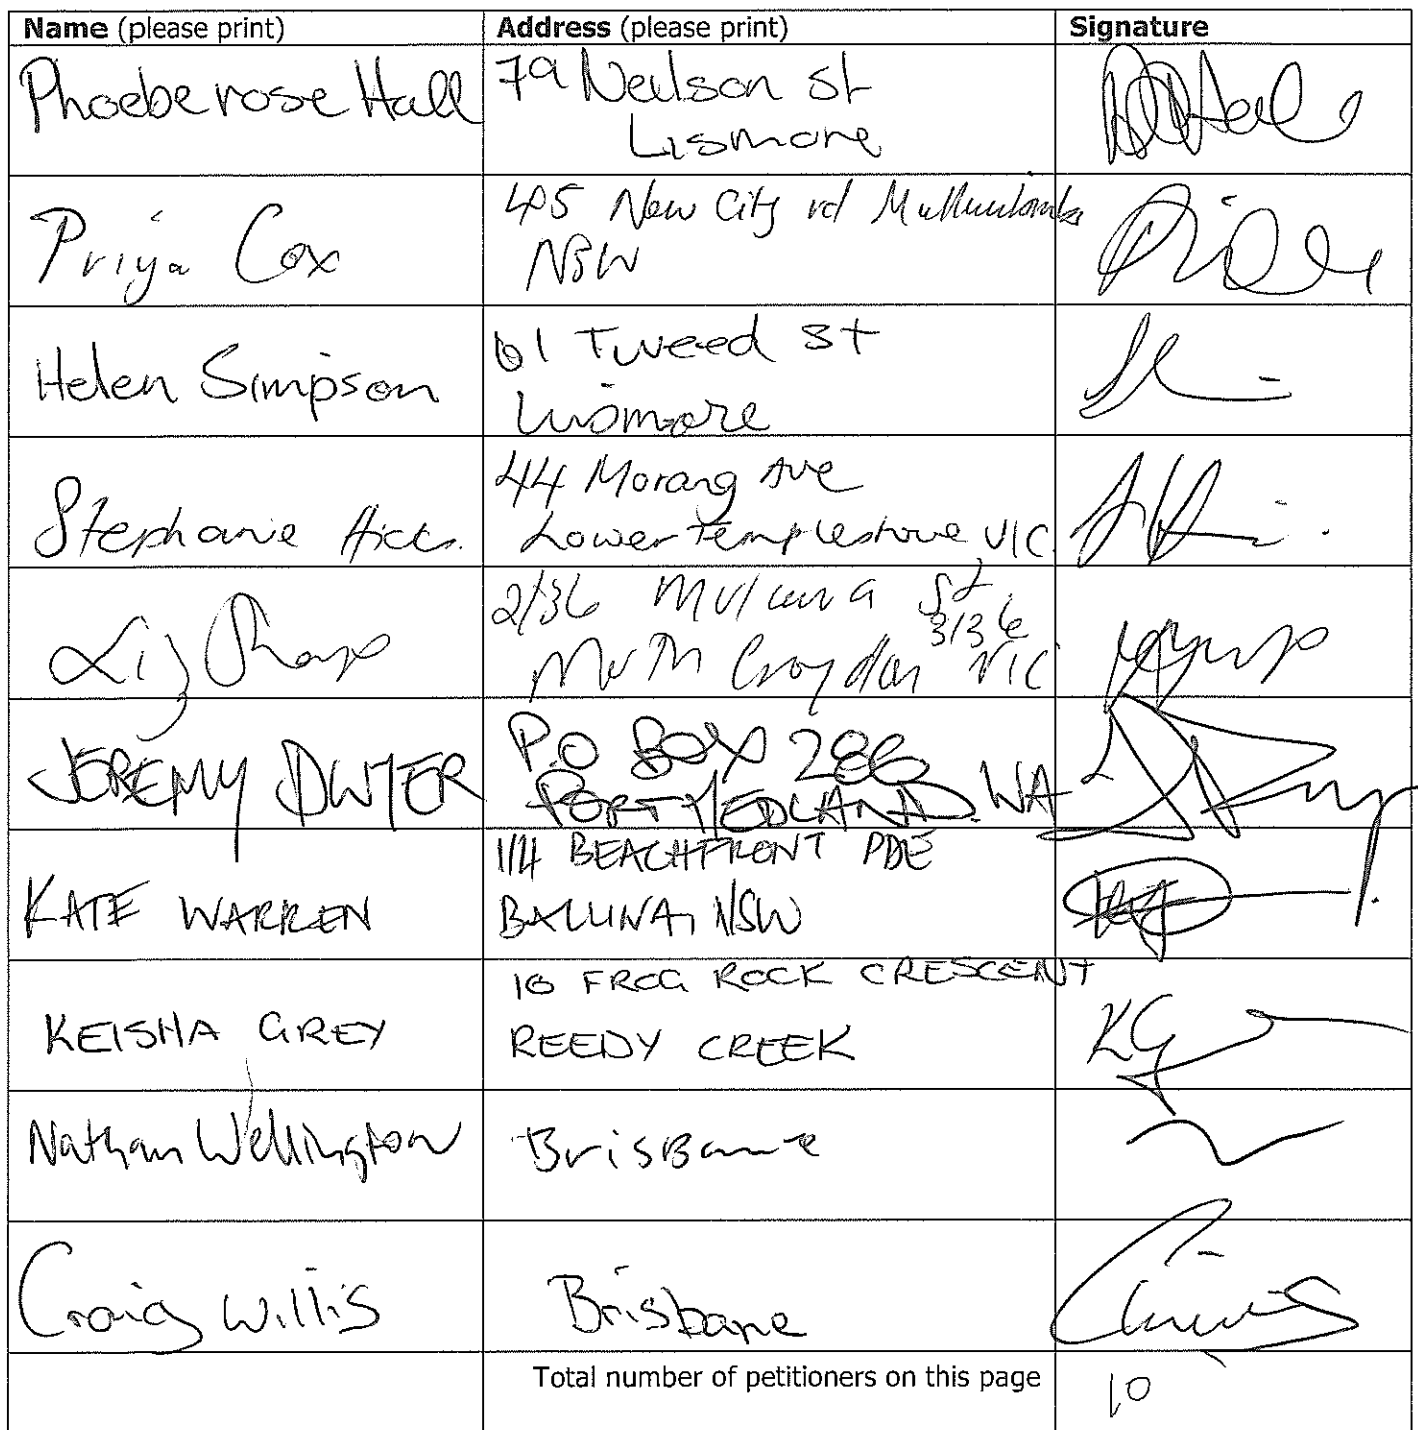 Name (please print) Address (please print) Signature
Phoebe rose Hall
79 Neilson St
Lismore
Priya Cox
495 New City rd
NSW
Helen Simpson
61 Tweed St
Lismore
Stephanie Hicks.
44 Morang Ave
Lower templestowe VIC.
Liz
2/36 St
3136
North Croydon VIC
JEREMY DWYER
P.O BOX 286
PORT HEDLAND. WA
KATE WARREN
1/14 BEACHFRONT PDE
BALLINA, NSW
KEISHA GREY
10 FROG ROCK CRESCENT
REEDY CREEK
KG
Nathan Wellington
BrisBane
Craig Willis
Brisbane
Total number of petitioners on this page 10